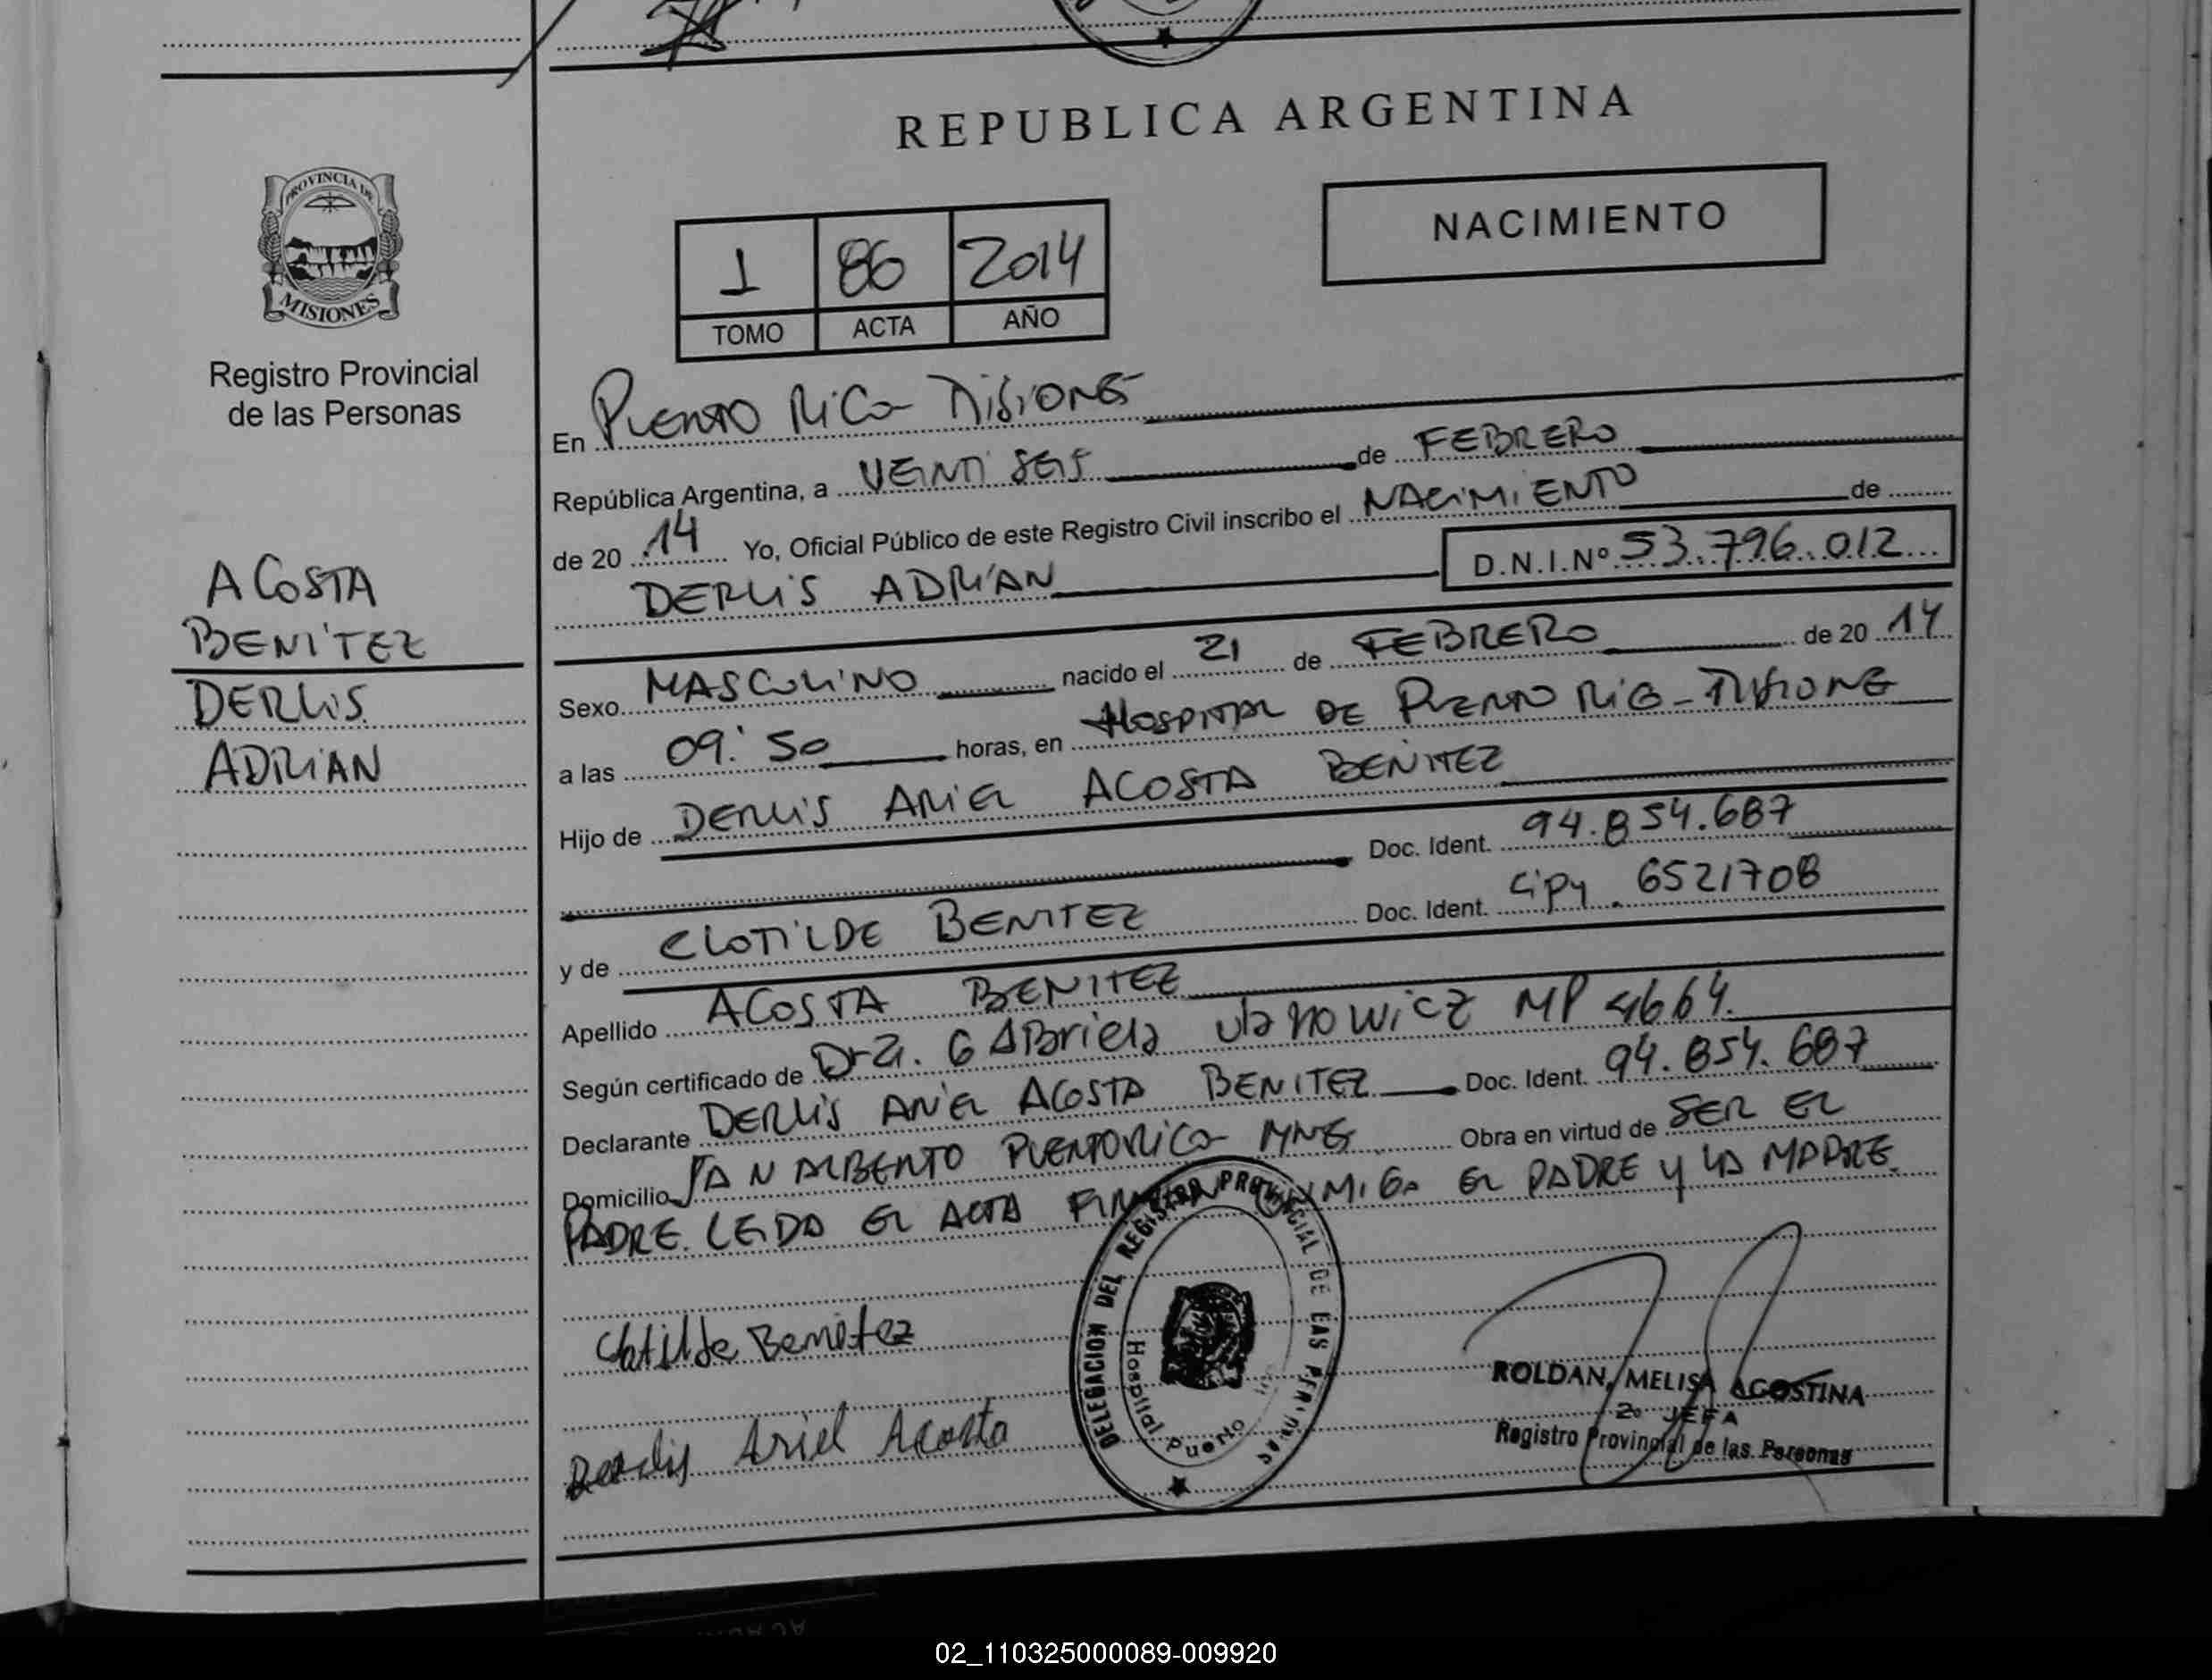 REPUBLICA ARGENTINA
NACIMIENTO
1 86 2014
TOMO ACTA AÑO
PROVINCIA DE
MISIONES
Registro Provincial
de las Personas
ACOSTA
BENITEZ
DERLIS
ADRIAN
En PUERTO RICO - MISIONES
República Argentina, a VEINTI SEIS de FEBRERO
de 20 14 Yo, Oficial Público de este Registro Civil inscribo el NACIMIENTO de
DERLIS ADRIAN D.N.I.Nº 53.796.012
Sexo MASCULINO nacido el 21 de FEBRERO de 20 14
a las 09:50 horas, en HOSPITAL DE PUERTO RICO - MISIONES
Hijo de DERLIS ARIEL ACOSTA BENITEZ
Doc. Ident. 94.854.687
y de CLOTILDE BENITEZ Doc. Ident. CIPY. 6521708
Apellido ACOSTA BENITEZ
Según certificado de Dra. GABriela ulanowicz MP 4664.
Declarante DERLIS ARIEL ACOSTA BENITEZ Doc. Ident. 94.854.687
Domicilio SAN ALBERTO PUERTO RICO MNES Obra en virtud de SER EL
PADRE. LEIDA EL ACTA FIRMAN EL PADRE Y LA MADRE.
Clotilde Benitez
Derlis Ariel Acosta
DELEGACION DEL REGISTRO PROVINCIAL DE LAS PERSONAS
Hospital Puerto
ROLDAN, MELISA AGOSTINA
2º JEFA
Registro Provincial de las Personas
02_110325000089-009920